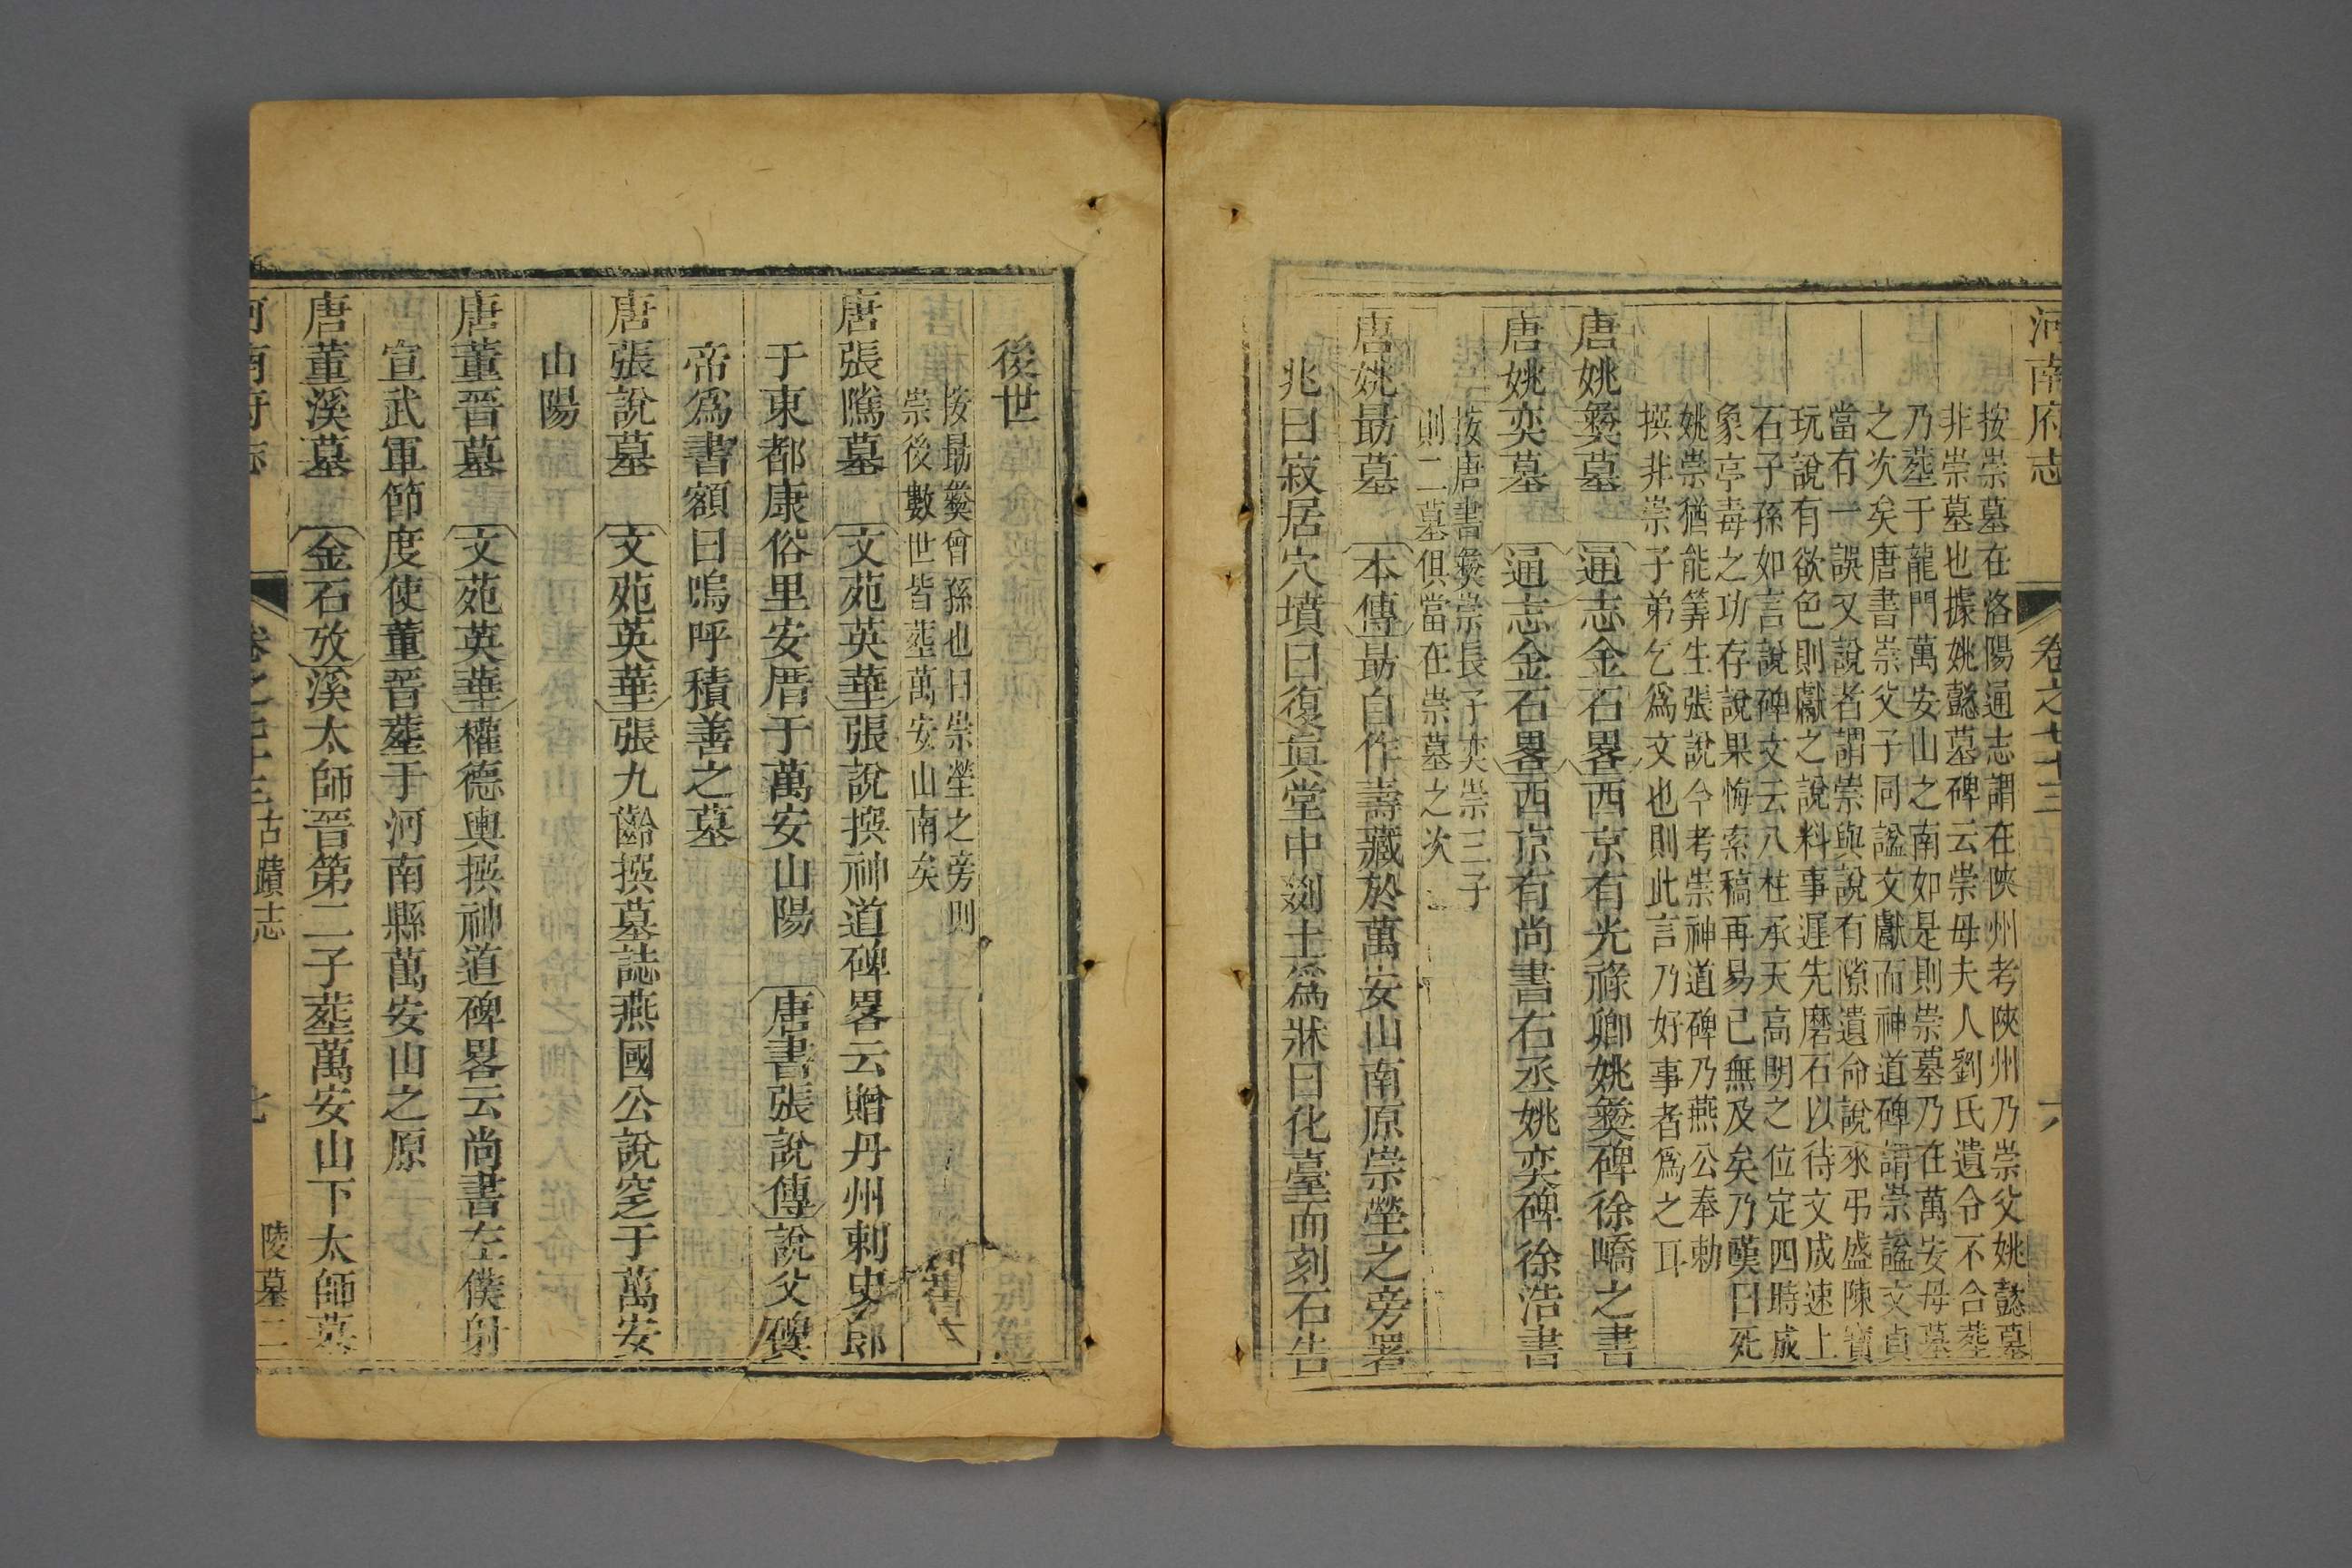 河南府志 卷之七十三 六
按崇墓在洛陽通志謂在陝州考陝州乃崇父姚懿墓
非崇墓也據姚懿墓碑云崇母夫人劉氏遺令不合塟
乃塟于龍門萬安山之南如是則崇墓乃在萬安母墓
之次矣唐書崇父子同諡文獻而神道碑謂崇諡文貞
當有一誤又說者謂崇與說有隙遺命說來弔盛陳寶
玩說有欲色則獻之說料事遲先磨石以待文成速上
石子孫如言說碑文云八柱承天高明之位定四時成
象亭毒之功存說果悔索稿再易已無及矣乃嘆曰死
姚崇猶能筭生張說今考崇神道碑乃燕公奉勅
撰非崇子弟乞爲文也則此言乃好事者爲之耳
唐姚彜墓 通志金石畧西京有光祿卿姚彜碑徐嶠之書
唐姚奕墓 通志金石畧西京有尚書右丞姚奕碑徐浩書
按唐書彜崇長子奕崇三子
則二墓俱當在崇墓之次
唐姚勗墓 本傳勗自作壽藏於萬安山南原崇塋之旁署
兆曰寂居穴墳曰復眞堂中剟土爲牀曰化臺而刻石告
後世
按勗彜曾孫也曰崇塋之旁則
崇後數世皆塟萬安山南矣
唐張隲墓 文苑英華張說撰神道碑畧云贈丹州刺史郎
于東都康俗里安厝于萬安山陽 唐書張說傳說父碑
帝爲書額曰嗚呼積善之墓
唐張說墓 文苑英華張九齡撰墓誌燕國公說窆于萬安
山陽
唐董晉墓 文苑英華權德輿撰神道碑畧云尚書左僕射
宣武軍節度使董晉塟于河南縣萬安山之原
唐董溪墓 金石攷溪太師晉第二子塟萬安山下太師墓
河南府志 卷之七十三 古蹟志 七 陵墓二